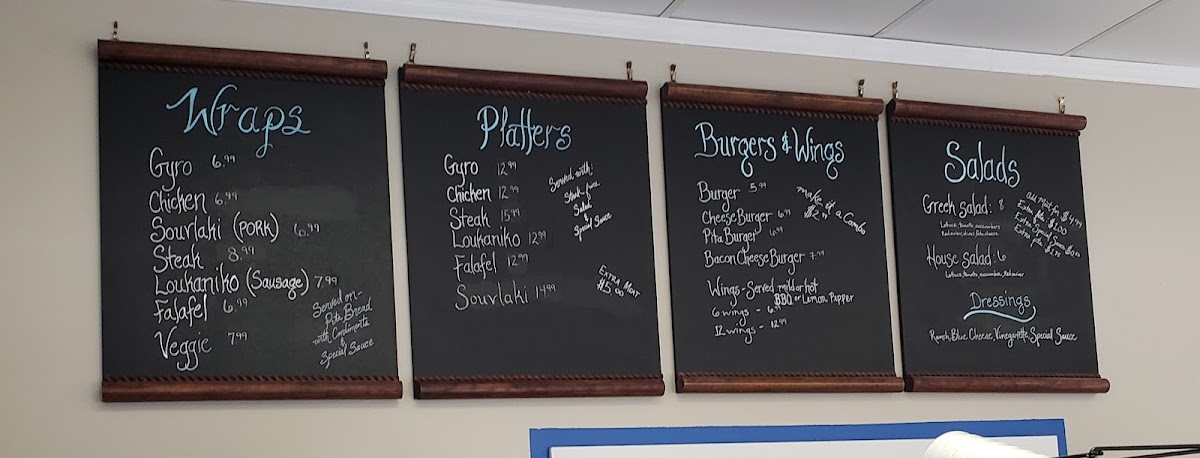 Wraps
Gyro 6.99
Chicken 6.99
Sourlaki (PORK) 6.99
Steak 8.99
Loukaniko (Sausage) 7.99
Falafel 6.99
Veggie 7.99
Served on-
Pita Bread
with Condiments
&
Special Sauce
Platters
Gyro 12.99
Chicken 12.99
Steak 15.99
Loukaniko 12.99
Falafel 12.99
Sourlaki 14.99
Served with:
Steak fries
Salad
Special Sauce
EXTRA MEAT
$5.00
Burgers & Wings
Burger 5.99
Cheese Burger 6.99
Pita Burger 6.99
Bacon Cheese Burger 7.99
make it a Combo
Wings - Served mild or hot
BBQ or Lemon Pepper
6 wings - 6.99
12 wings - 12.99
Salads
Greek salad: 8
House salad: 6
add meat for $4.99
Extra feta $1.00
Extra Special Sauce
Extra pita
Dressings
Ranch, Blue Cheese, Vinegarette, Special Sauce